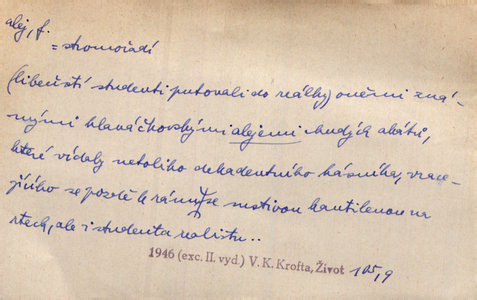 alej, f.
= stromořadí
(libeňští studenti putovali do reálky) oněmi zná-
nými hlaváčkovskými alejemi chudých akátů,
které vídaly netoliko dekadentního básníka, vrace-
jícího se pozdě k ránu se mstivou kantilenou na
rtech, ale i studenta realistu..
1946 (exc. II. vyd.) V. K. Krofta, Život 105,9